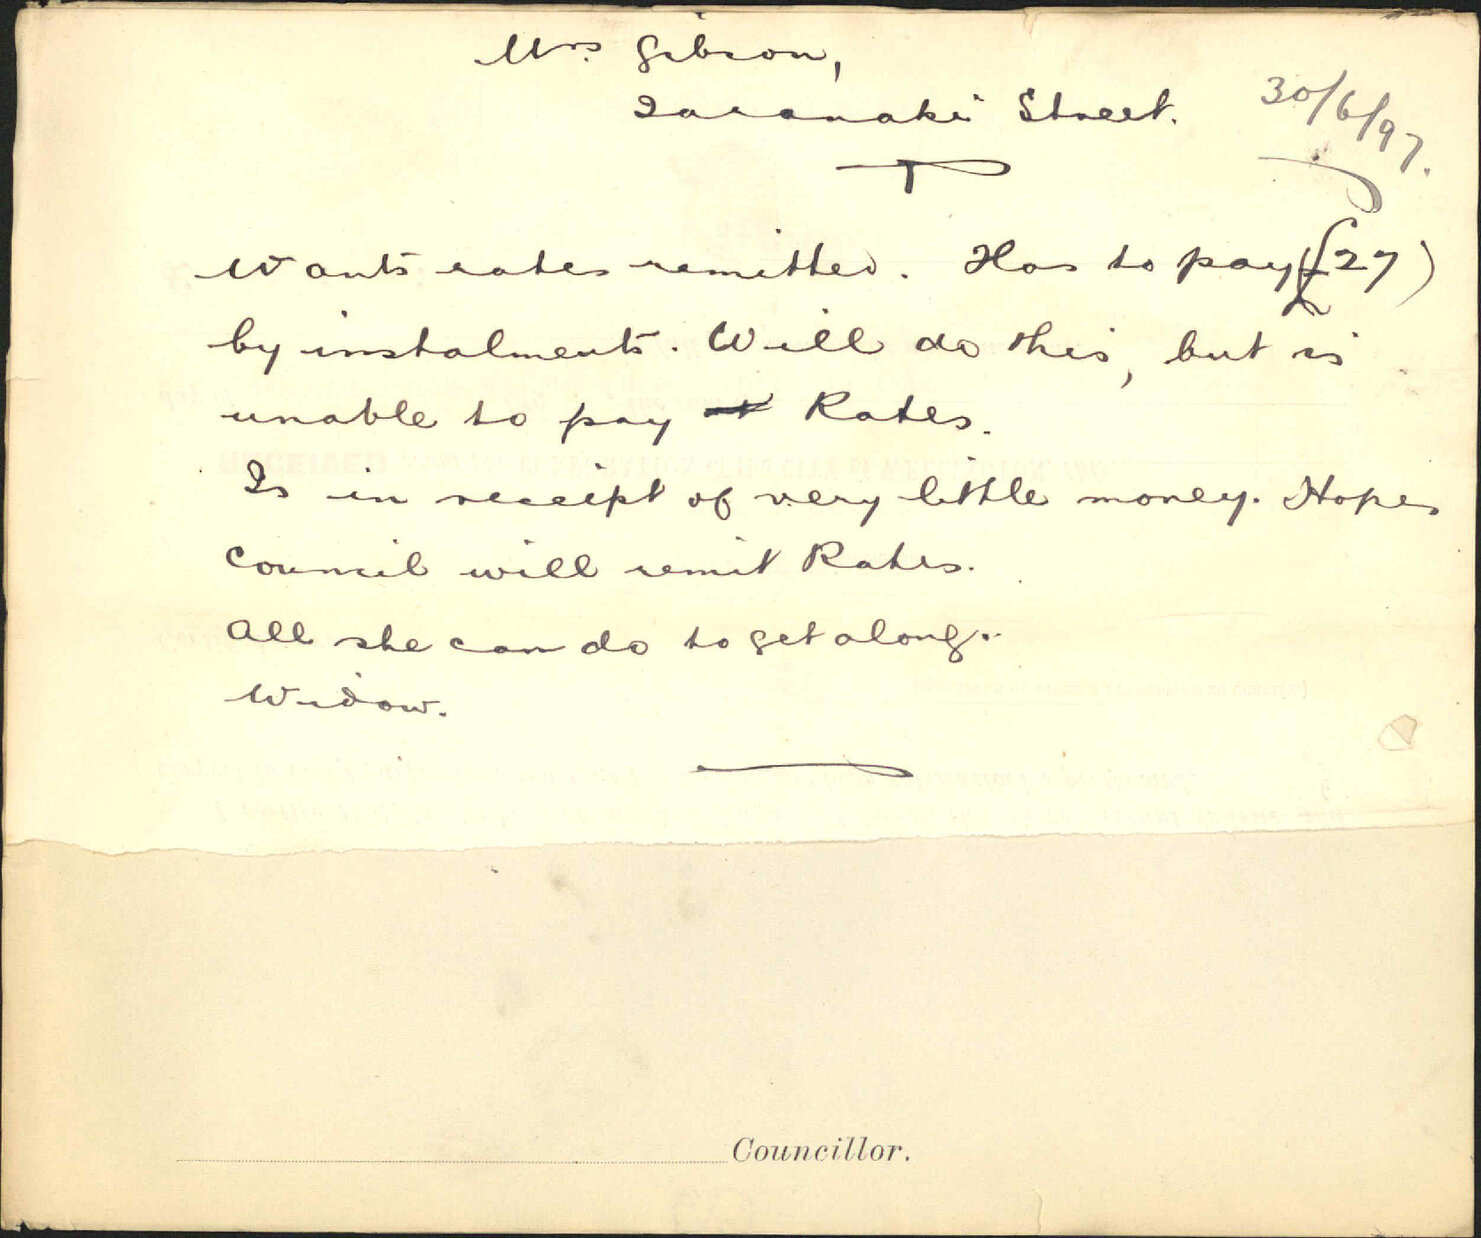 Mrs Gibson,
Taranaki Street.
30/6/97.
Wants rates remitted. Has to pay (£27)
by instalments. Will do this, but is
unable to pay Rates.
Is in receipt of very little money. Hopes
Council will remit Rates.
All she can do to get along.
Widow.
Councillor.